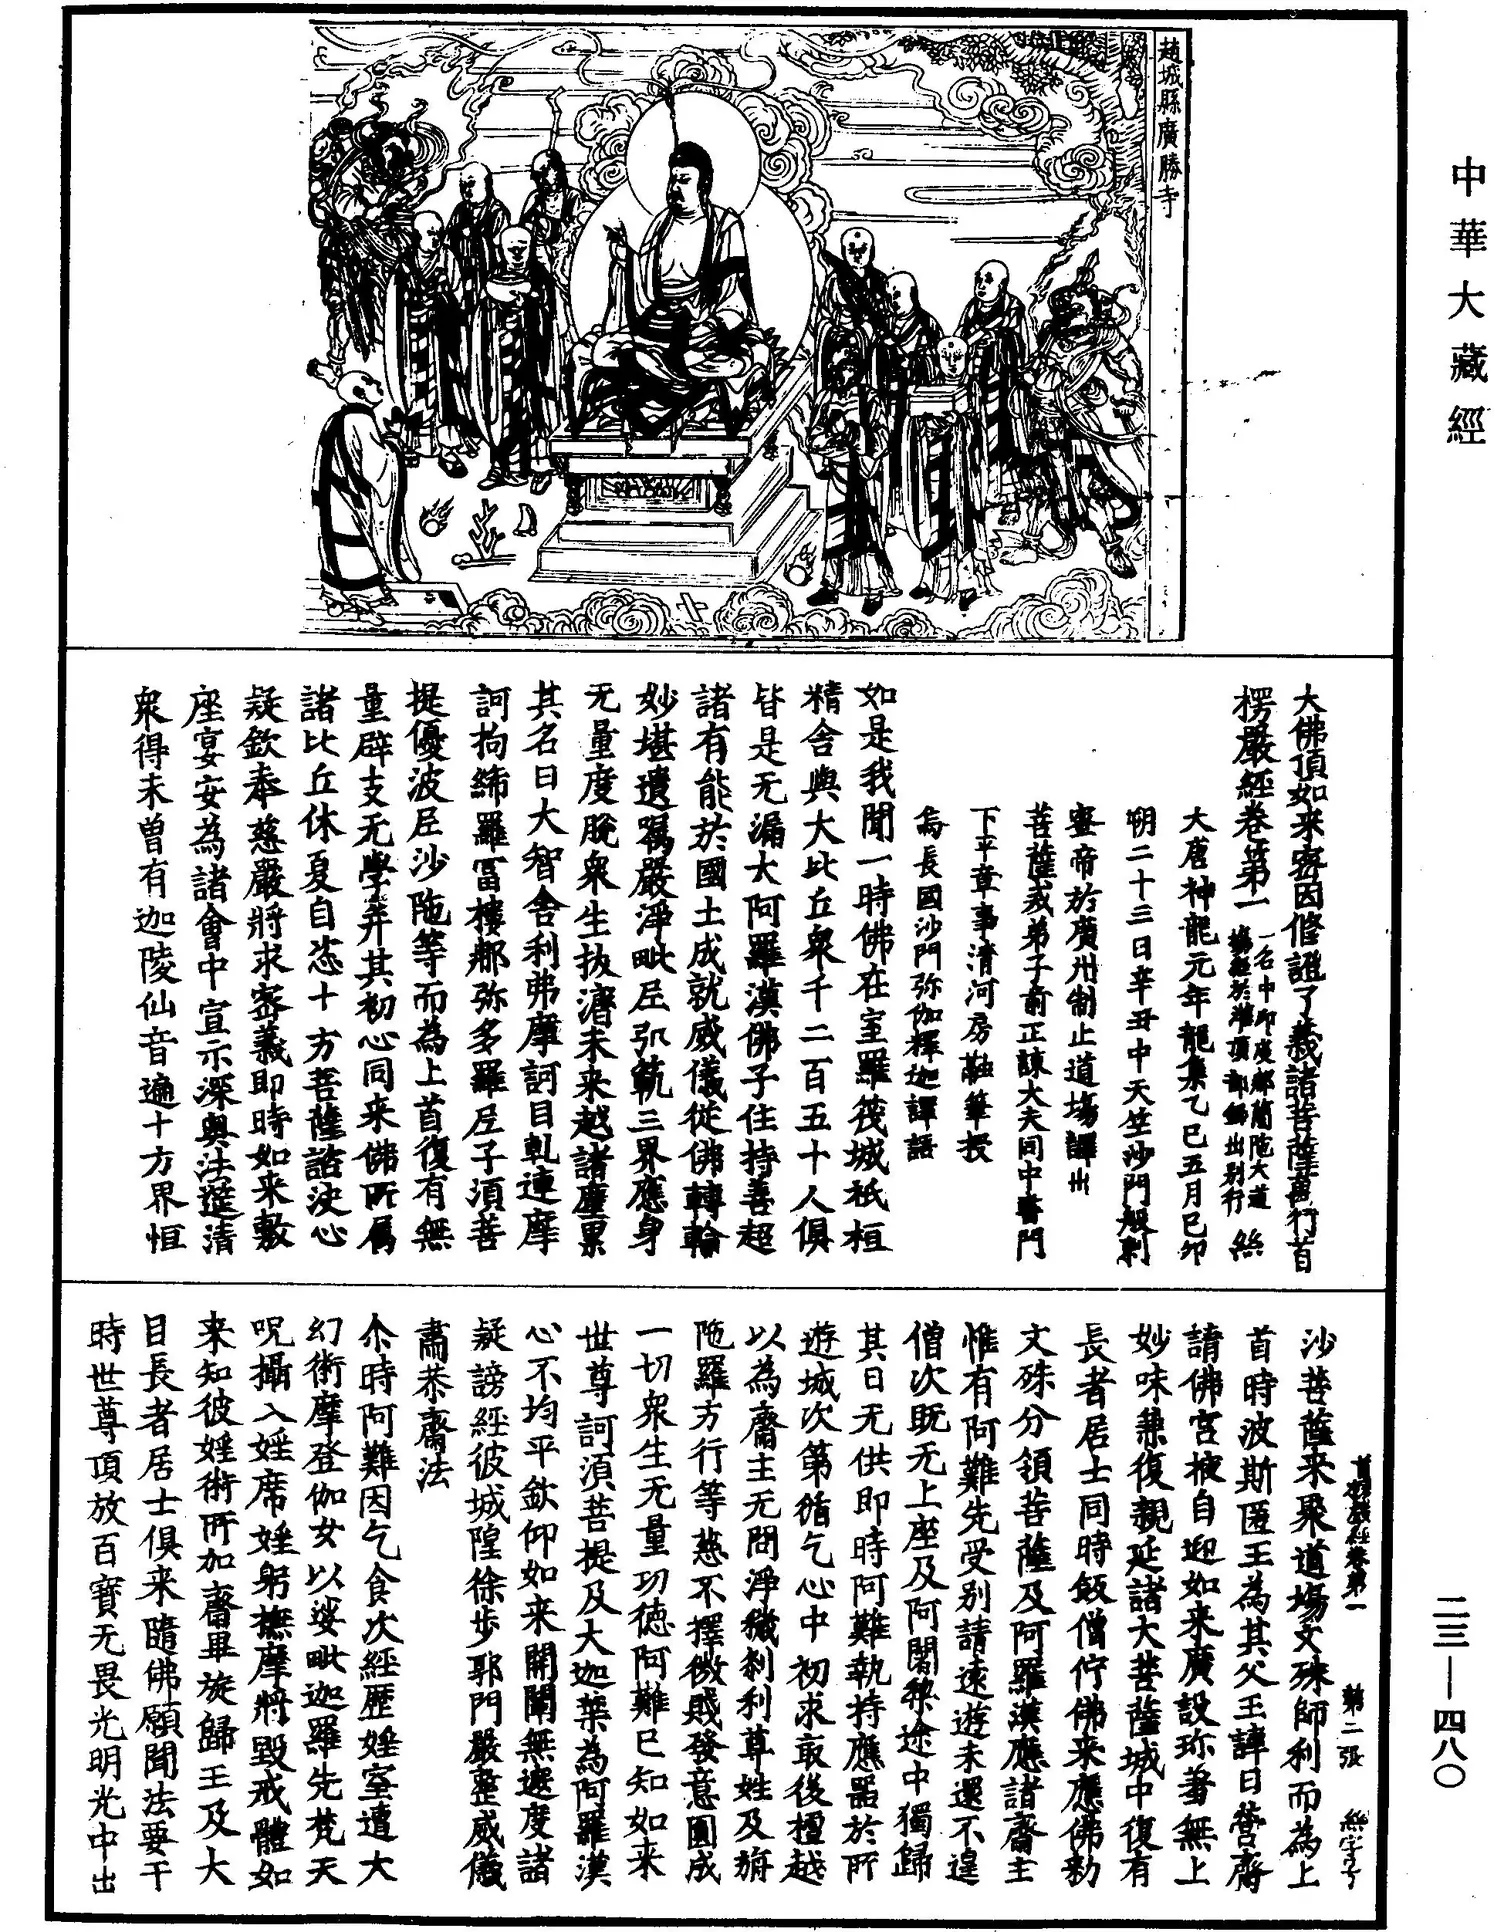 中華大藏經
趙城縣廣勝寺
大佛頂如来密因修證了義諸菩薩萬行首
楞嚴經卷第一 一名中印度那蘭陁大道塲經於灌頂部録出别行 絲
大唐神龍元年龍集乙巳五月己卯
朔二十三日辛丑中天竺沙門般剌
蜜帝於廣州制止道塲譯出
菩薩戒弟子前正諫大夫同中書門
下平章事清河房融筆授
烏長國沙門弥伽釋迦譯語
如是我聞一時佛在室羅筏城祇桓
精舍與大比丘衆千二百五十人俱
皆是无漏大阿羅漢佛子住持善超
諸有能於國土成就威儀從佛轉輪
妙堪遺囑嚴淨毗尼弘範三界應身
无量度脫衆生拔濟未来越諸塵累
其名曰大智舍利弗摩訶目乹連摩
訶拘絺羅冨樓那弥多羅尼子湏菩
提優波尼沙陁等而為上首復有無
量辟支无學并其初心同来佛所属
諸比丘休夏自恣十方菩薩諮决心
疑欽奉慈嚴將求密義即時如来敷
座宴安為諸會中宣示深奥法筵清
衆得未曾有迦陵仙音遍十方界恒
首楞嚴經卷第一 第二張 絲字号
沙菩薩来聚道塲文殊師利而為上
首時波斯匿王為其父王諱日營齋
請佛宫掖自迎如来廣設珎羞無上
妙味兼復親延諸大菩薩城中復有
長者居士同時飯僧佇佛来應佛勑
文殊分領菩薩及阿羅漢應諸齋主
惟有阿難先受别請遠遊未還不遑
僧次既无上座及阿闍梨途中獨歸
其日无供即時阿難執持應器於所
遊城次第循乞心中初求最後檀越
以為齋主无問淨穢刹利尊姓及旃
陁羅方行等慈不擇微賤發意圓成
一切衆生无量功徳阿難已知如来
世尊訶湏菩提及大迦葉為阿羅漢
心不均平欽仰如来開闡無遮度諸
疑謗經彼城隍徐步郭門嚴整威儀
肅恭齋法
尒時阿難因乞食次經歷婬室遭大
幻術摩登伽女以娑毗迦羅先梵天
呪攝入婬席婬躬撫摩將毀戒體如
来知彼婬術所加齋畢旋歸王及大
臣長者居士俱来隨佛願聞法要于
時世尊頂放百寶无畏光明光中出
二三—四八〇